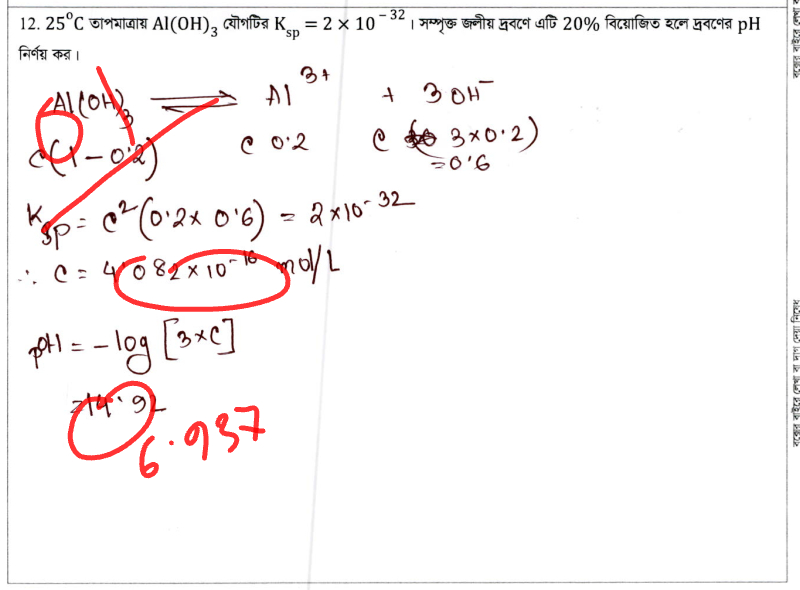 12. 25°C তাপমাত্রায় Al(OH)₃ যৌগটির Kₛₚ = 2 × 10⁻³² । সম্পৃক্ত জলীয় দ্রবণে এটি 20% বিয়োজিত হলে দ্রবণের pH
নির্ণয় কর ।
Al(OH)₃ ⇌ Al³⁺ + 3OH⁻
c(1-0.2) c 0.2 c (3×0.2)
=0.6
Ksp = c²(0.2×0.6) = 2×10⁻³²
∴ c = 4.082×10⁻¹⁶ mol/L
pOH = -log [3×c]
=14.92
6.937